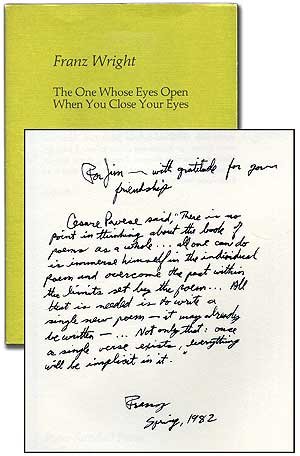 Franz Wright
The One Whose Eyes Open
When You Close Your Eyes
For Jim — with gratitude for your
friendship
Cesare Pavese said, "There is no
point in thinking about the book of
poems as a whole... all one can do
is immerse himself in the individual
poem and overcome the past within
the limits set by the poem... All
that is needed is to write a
single new poem — it may already
be written — ... Not only that: once
a single verse exists, everything
will be implicit in it."
Franz
Spring, 1982